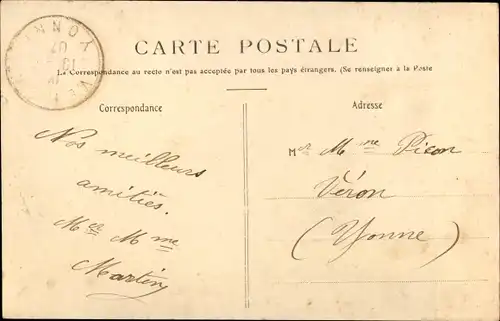 CARTE POSTALE
La Correspondance au recto n'est pas acceptée par tous les pays étrangers. (Se renseigner à la Poste
Correspondance
Nos meilleurs
amitiés.
Mr Mme
Martin
Adresse
Mr Mme Picon
Véron
(Yonne)
YONNE
07